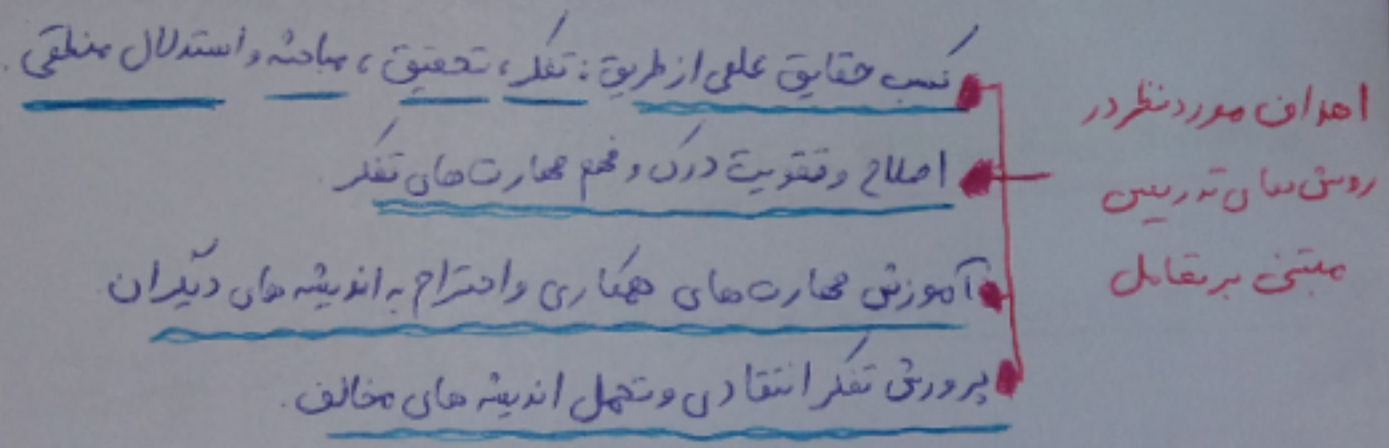 اهداف مورد نظر در
روش های تدریس
مبتنی بر تعامل
کسب حقایق علمی از طریق: تفکر، تحقیق، مباحثه و استدلال منطقی.
اصلاح و تقویت درک و فهم مهارت های تفکر.
آموزش مهارت های همکاری و احترام به اندیشه های دیگران
پرورش تفکر انتقادی و تحمل اندیشه های مخالف.